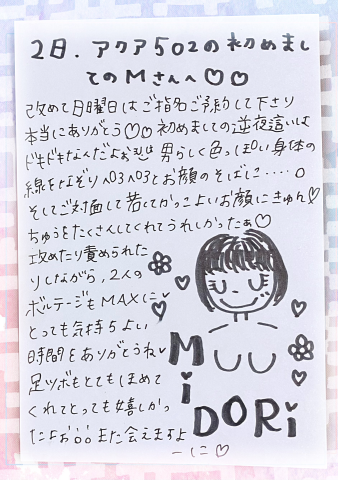 2日．アクア502の初めまし
てのMさんへ♡♡
改めて日曜日はご指名ご予約して下さり
本当にありがとう♡♡初めましての逆夜這いは
ドキドキなんだよぉ 男らしく色っぽい身体の
線をなぞりへ03へ03とお顔のそばに‥‥。
そしてご対面して若くてかっこよいお顔にきゅん♡
ちゅうをたくさんしてくれてうれしかったぁ♡
攻めたり責められた
りしながら、2人の
ボルテージもMAXに
とっても気持ちよい
時間をありがとうね♡
足ツボもとてもほめて
くれてとっても嬉しかっ
たよぉ また会えますよ
ーに♡
MiDORi